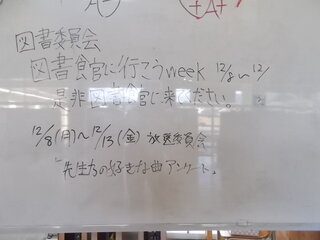 図書委員会
図書食官に行こうweek 12/8～12/
是非図書食官に来てください。
12/8(月)～12/13(金) 放送委員会
「先生方の好きな曲アンケート」